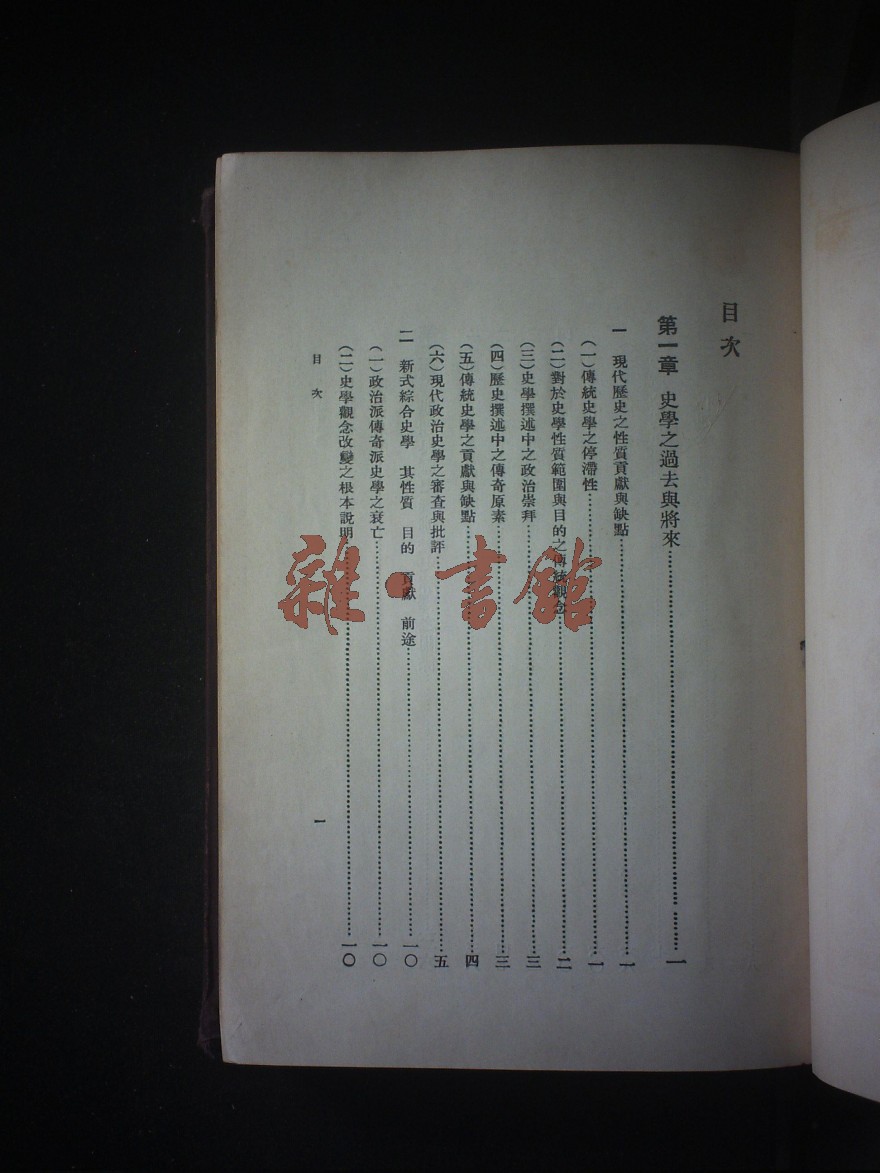 目次
第一章　史學之過去與將來……一
一　現代歷史之性質貢獻與缺點……一
（一）傳統史學之停滯性……一
（二）對於史學性質範圍與目的之傳統觀念……二
（三）史學撰述中之政治崇拜……三
（四）歷史撰述中之傳奇原素……三
（五）傳統史學之貢獻與缺點……四
（六）現代政治史學之審查與批評……五
二　新式綜合史學　其性質　目的　貢獻　前途……一〇
（一）政治派傳奇派史學之衰亡……一〇
（二）史學觀念改變之根本說明……一〇
目次　一
雜·書館